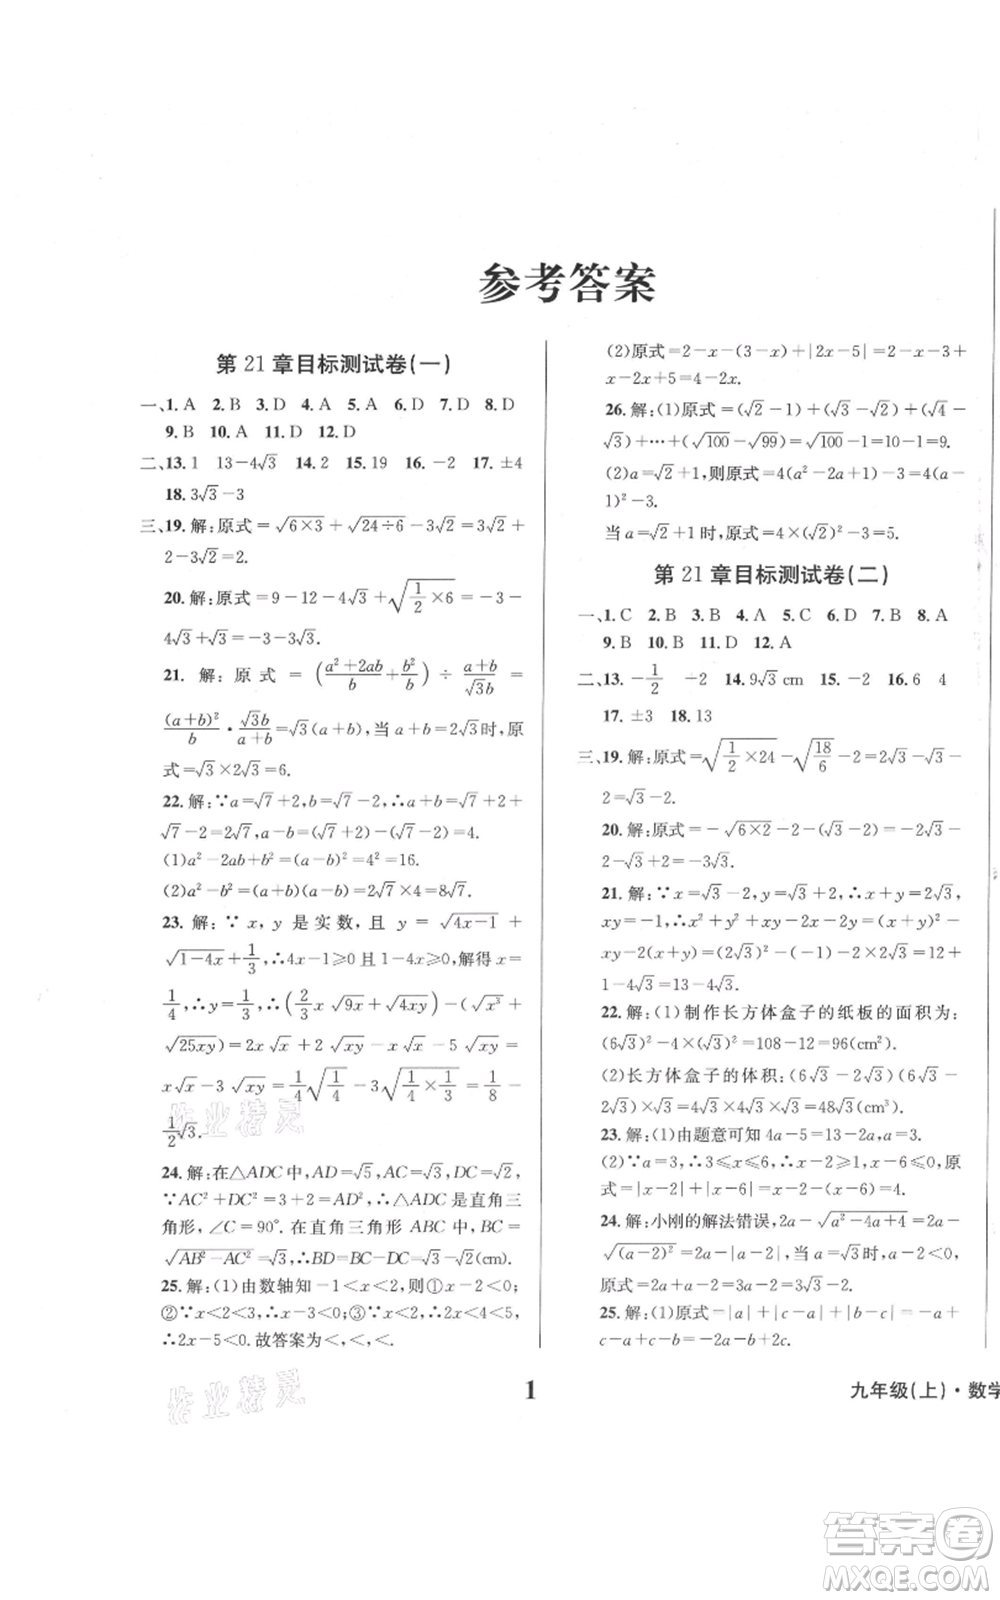 参考答案
第 21 章目标测试卷(一)
一、1. A 2. B 3. D 4. A 5. A 6. D 7. D 8. D
9. B 10. A 11. D 12. D
二、13. 1 13-4√3 14. 2 15. 19 16. -2 17. ±4
18. 3√3-3
三、19. 解:原式=√(6×3)+√(24÷6)-3√2=3√2+
2-3√2=2.
20. 解:原式=9-12-4√3+√(1/2×6)=-3-
4√3+√3=-3-3√3.
21. 解:原式=((a²+2ab)/b+b²/b)÷(a+b)/(√3b)=
(a+b)²/b·√3b/(a+b)=√3(a+b),当 a+b=2√3时,原
式=√3×2√3=6.
22. 解:∵a=√7+2,b=√7-2,∴a+b=√7+2+
√7-2=2√7,a-b=√7+2-√7+2=4.
(1)a²-2ab+b²=(a-b)²=4²=16.
(2)a²-b²=(a+b)(a-b)=2√7×4=8√7.
23. 解:∵x,y 是实数,且 y=√(4x-1)+
√(1-4x)+1/3,∴4x-1≥0且1-4x≥0,解得 x=
1/4,∴y=1/3,∴(2/3x√(9x)+√(4xy))-(√(x³)+
√(25xy))=2x√x+2√(xy)-x√x-5√(xy)=
x√x-3√(xy)=1/4√(1/4)-3√(1/4×1/3)=1/8-
1/2√3.
24. 解:在△ADC中,AD=√5,AC=√3,DC=√2,
∵AC²+DC²=3+2=AD²,∴△ADC是直角三
角形,∠C=90°.在直角三角形 ABC中,BC=
√(AB²-AC²)=√3,∴BD=BC-DC=√3-√2(cm).
25. 解:(1)由数轴知-1<x<2,则①x-2<0;
②∵x<2<3,∴x-3<0;③∵x<2,∴2x<4<5,
∴2x-5<0.故答案为<,<,<.
(2)原式=2-x-(3-x)+|2x-5|=2-x-3+
x-2x+5=4-2x.
26. 解:(1)原式=(√2-1)+(√3-√2)+(√4-√3)
+…+(√100-√99)=√100-1=10-1=9.
(2)a=√2+1,则原式=4(a²-2a+1)-3=4(a-
1)²-3.
当 a=√2+1时,原式=4×(√2)²-3=5.
第 21 章目标测试卷(二)
一、1. C 2. B 3. B 4. A 5. C 6. D 7. B 8. A
9. B 10. B 11. D 12. A
二、13. -1/2 -2 14. 9√3 cm 15. -2 16. 6 4
17. ±3 18. 13
三、19. 解:原式=√(1/2×24)-√(18/6)-2=2√3-√3-
2=√3-2.
20. 解:原式=-√(6×2)-2+√3=-2√3-
2+√3=-√3-2.
21. 解:∵x=√3-2,y=√3+2,∴x+y=2√3,
xy=-1,∴x²+y²-xy-2x-2y=(x+y)²-3
xy-2(x+y)=(2√3)²-3×(-1)-2×2√3=12+
3-4√3=15-4√3.
22. 解:(1)制作长方体盒子的纸板的面积为:
(6√3)²-4×(√3)²=108-12=96(cm²).
(2)长方体盒子的体积:(6√3-2√3)(6√3-
2√3)×√3=4√3×4√3×√3=48√3(cm³).
23. 解:(1)由题意可知 4a-5=13-2a,a=3.
(2)∵a=3,∴3≤x≤6,∴x-2>0,x-6≤0,原
式=|x-2|+|x-6|=x-2-x+6=4.
24. 解:小刚的解法错误,2a-√(a²-4a+4)=2a-
√(a-2)²=2a-|a-2|,当 a=√3时,a-2<0,
原式=2a+a-2=3a-2=3√3-2.
25. 解:(1)原式=|a|+|c-a|+|c-b|=-a+
c-a+c-b=-2a+2c-b.
作业精灵
作业精灵
1
九年级(上)·数学
答案卷